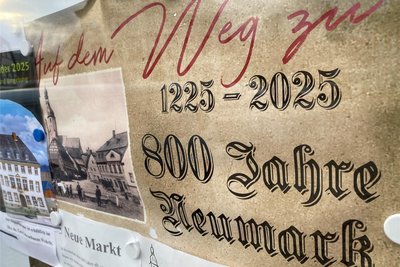 Auf dem Weg zu
1225 - 2025
800 Jahre
Neumark
2025
Neue Markt